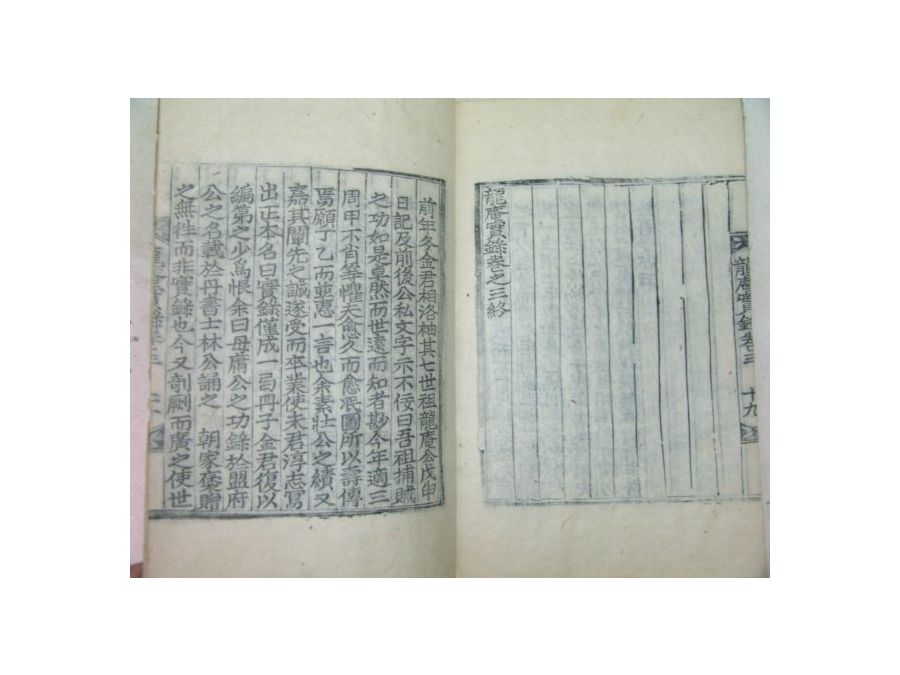 龍庵實錄卷三 十九
龍庵實錄卷之三終
前年冬金君相洛袖其七世祖龍庵公戊申
日記及前後公私文字示不佞曰吾祖捕賊
之功如是卓然而世遠而知者尠今年適三
周甲不肖等懼夫愈久而愈泯圖所以壽傳
願丁乙而並惠一言也余素壯公之績又
嘉其闡先之誠遂受而卒業使朱君淳志寫
出正本名曰實錄僅成一冊子金君復以
編第之少爲恨余曰毋庸公之功錄於盟府
公之名載於丹書士林公誦之 朝家褒贈
之無徃而非實錄也今又剞劂而廣之使世